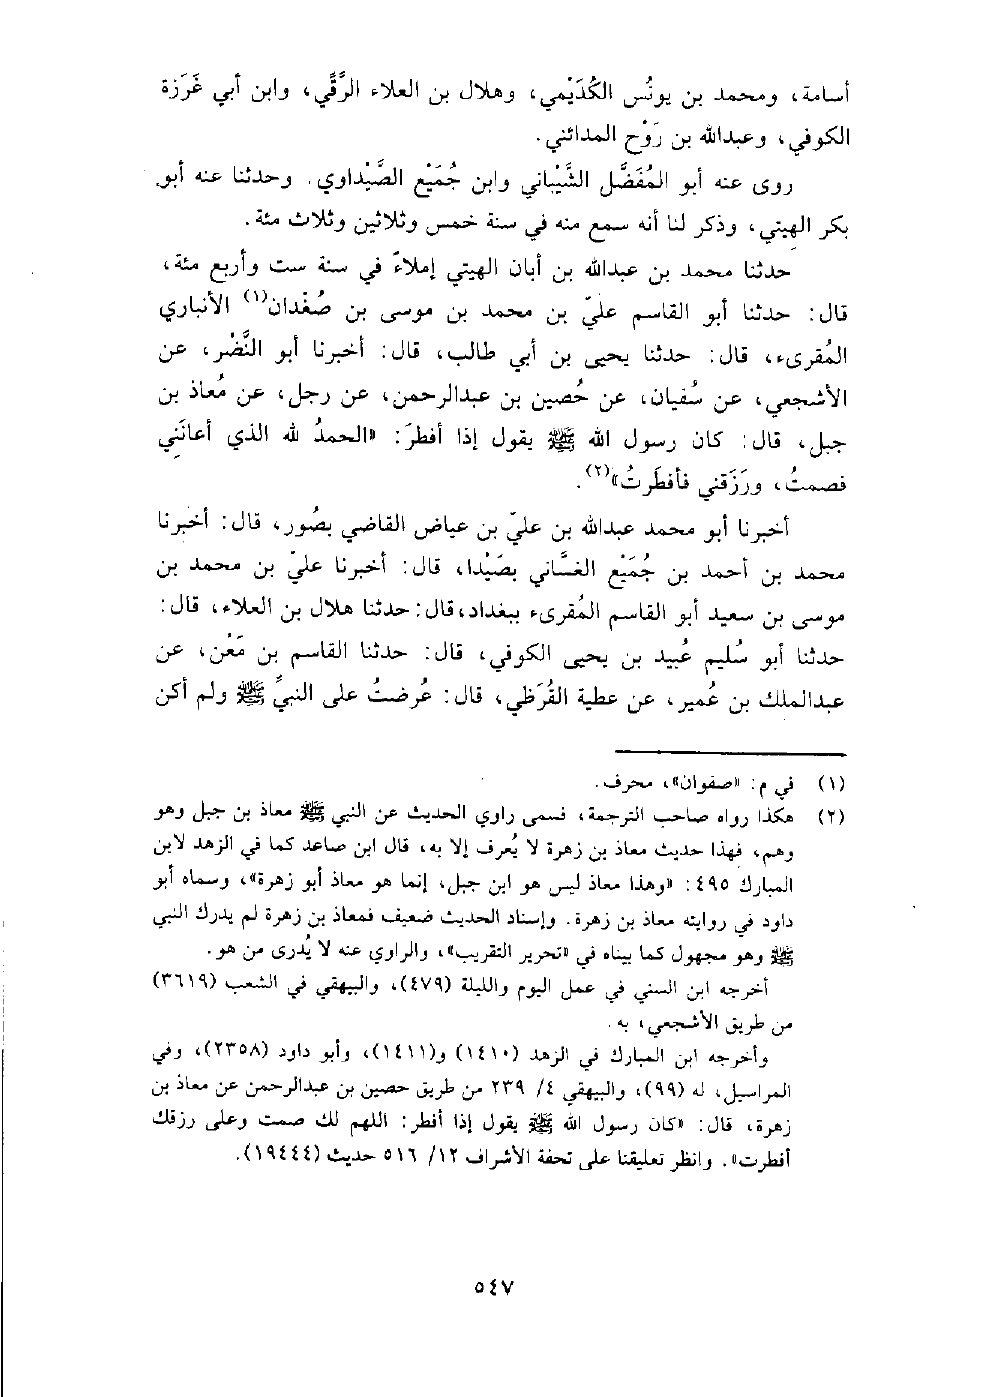 أسامة، ومحمد بن يونُس الكُدَيْمي، وهلال بن العلاء الرَّقِّي، وابن أبي غَرَزة
الكوفي، وعبدالله بن رَوْح المدائني.
روى عنه أبو المُفَضَّل الشَّيْباني وابن جُمَيْع الصَّيْداوي. وحدثنا عنه أبو
بكر الهيتي، وذكر لنا أنه سمع منه في سنة خمس وثلاثين وثلاث مئة.
حدثنا محمد بن عبدالله بن أبان الهيتي إملاءً في سنة ست وأربع مئة،
قال: حدثنا أبو القاسم عليّ بن محمد بن موسى بن صُغْدان(١) الأنباري
المُقرىء، قال: حدثنا يحيى بن أبي طالب، قال: أخبرنا أبو النَّضْر، عن
الأشجعي، عن سُفيان، عن حُصين بن عبدالرحمن، عن رجل، عن مُعاذ بن
جبل، قال: كان رسول الله ﷺ يقول إذا أفطرَ: «الحمدُ لله الذي أعانَني
فصمتُ، ورَزَقني فأفطَرتُ»(٢).
أخبرنا أبو محمد عبدالله بن عليّ بن عياض القاضي بصُور، قال: أخبرنا
محمد بن أحمد بن جُمَيْع الغسَّاني بصَيْدا، قال: أخبرنا عليّ بن محمد بن
موسى بن سعيد أبو القاسم المُقرىء ببغداد، قال: حدثنا هلال بن العلاء، قال:
حدثنا أبو سُليم عُبيد بن يحيى الكوفي، قال: حدثنا القاسم بن مَعْن، عن
عبدالملك بن عُمير، عن عطية القُرَظي، قال: عُرضتُ على النبيِّ ﷺ ولم أكن
(١) في م: «صفوان»، محرف.
(٢) هكذا رواه صاحب الترجمة، فسمى راوي الحديث عن النبي ﷺ معاذ بن جبل وهو
وهم، فهذا حديث معاذ بن زهرة لا يُعرف إلا به، قال ابن صاعد كما في الزهد لابن
المبارك ٤٩٥: «وهذا معاذ ليس هو ابن جبل، إنما هو معاذ أبو زهرة»، وسماه أبو
داود في روايته معاذ بن زهرة. وإسناد الحديث ضعيف فمعاذ بن زهرة لم يدرك النبي
ﷺ وهو مجهول كما بيناه في «تحرير التقريب»، والراوي عنه لا يُدرى من هو.
أخرجه ابن السني في عمل اليوم والليلة (٤٧٩)، والبيهقي في الشعب (٣٦١٩)
من طريق الأشجعي، به.
وأخرجه ابن المبارك في الزهد (١٤١٠) و(١٤١١)، وأبو داود (٢٣٥٨)، وفي
المراسيل، له (٩٩)، والبيهقي ٤/ ٢٣٩ من طريق حصين بن عبدالرحمن عن معاذ بن
زهرة، قال: «كان رسول الله ﷺ يقول إذا أفطر: اللهم لك صمت وعلى رزقك
أفطرت». وانظر تعليقنا على تحفة الأشراف ١٢/ ٥١٦ حديث (١٩٤٤٤).
٥٤٧